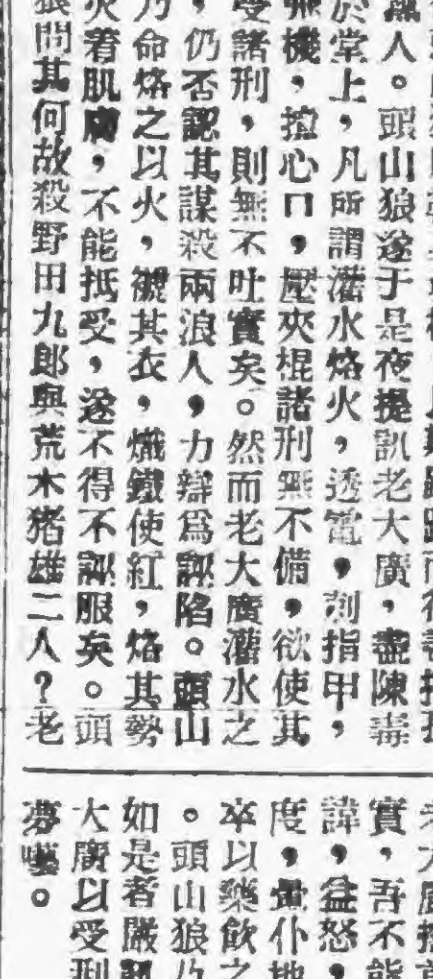 人。頭山狼遂于是夜提訊老大廣,盡陳毒
於堂上,凡所謂灌水烙火,透電,刺指甲,
機,搾心口,壓夾棍諸刑無不備,欲使其
受諸刑,則無不吐實矣。然而老大廣灌水之
,仍否認其謀殺兩浪人,力辯爲誣陷。頭山
乃命烙之以火,褫其衣,熾鐵使紅,烙其勢
火着肌膚,不能抵受,遂不得不誣服矣。頭
狼問其何故殺野田九郎與荒木猪雄二人?老
實,吾不能
諱,益怒,
度,暈仆地
卒以藥飲之
。頭山狼乃
如是者嚴訊
大廣以受刑
夢囈。